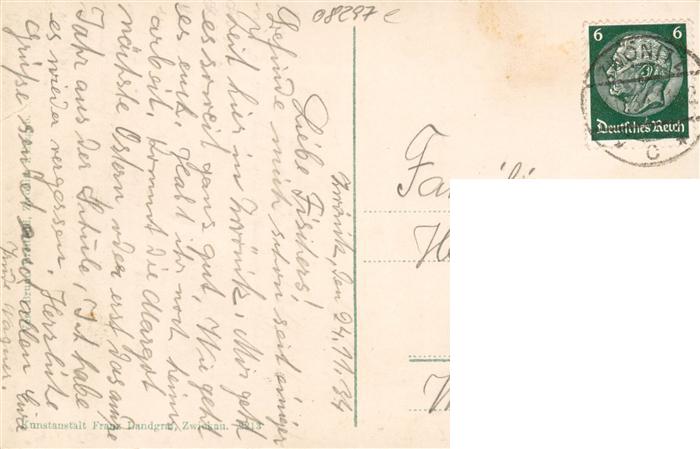 08297 e
6 6
Deutsches Reich
ZWÖNITZ
* C *
Fa
H
W
Zwönitz, den 24.11.34
Liebe Fischers!
Befinde mich schon seit einiger
Zeit hier in Zwönitz. Mir geht
es soweit ganz gut. Wie geht
es euch. Habt ihr noch keine
arbeit. Kommt die Margot
nächste Ostern oder erst das andre
Jahr aus der Schule, Ich habe
es wieder vergessen. Herzliche
Grüße sendet euch allen Eure
Wagner.
Kunstanstalt Franz Landgraf, Zwickau. 2213